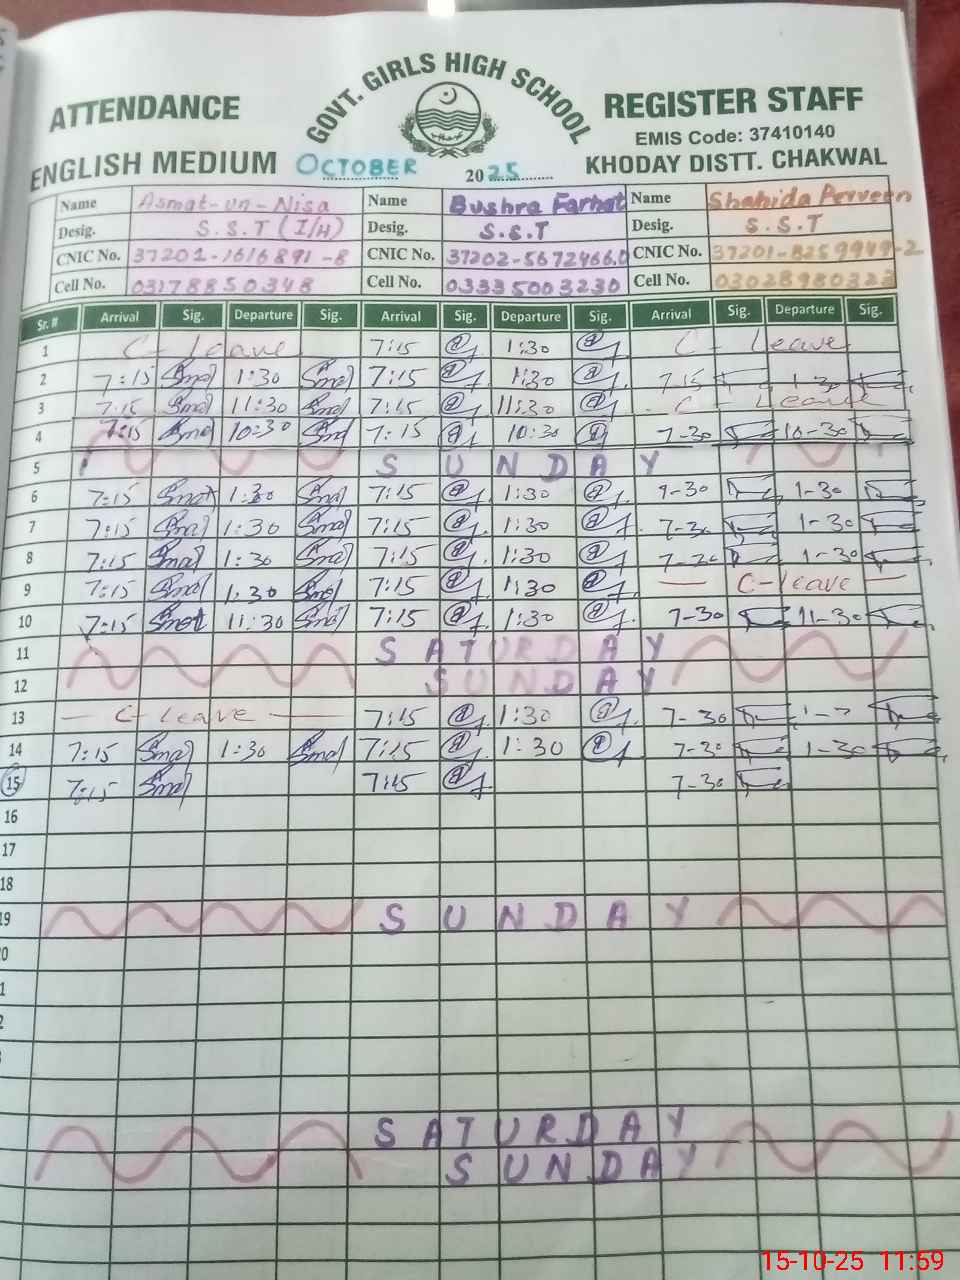 GOVT. GIRLS HIGH SCHOOL
ATTENDANCE REGISTER STAFF
EMIS Code: 37410140
ENGLISH MEDIUM OCTOBER 2025 KHODAY DISTT. CHAKWAL
Name Asmat-un-Nisa Name Bushra Farhat Name Shahida Perveen
Desig. S.S.T (I/H) Desig. S.S.T Desig. S.S.T
CNIC No. 37201-1616891-8 CNIC No. 37202-5672466.0 CNIC No. 37201-8259949-2
Cell No. 03178850348 Cell No. 03335003230 Cell No. 03028980323
Sr. # Arrival Sig. Departure Sig. Arrival Sig. Departure Sig. Arrival Sig. Departure Sig.
1 C-leave 7:15 1:30 C-Leave
2 7:15 1:30 7:15 1:30 7-15 1-30
3 7:15 11:30 7:15 11:30 C-Leave
4 7:15 10:30 7:15 10:30 7-30 10-30
5 SUNDAY
6 7:15 1:30 7:15 1:30 1-30
7 7:15 1:30 7:15 1:30 7-30 1-30
8 7:15 1:30 7:15 1:30 1-30
9 7:15 1:30 7:15 1:30 — C-leave —
10 7:15 11:30 7:15 1:30 7-30 11-30
11 SATURDAY
12 SUNDAY
13 — C-leave — 7:15 1:30 7-30
14 7:15 1:30 7:15 1:30 7-30 1-30
15 7:15 7:15 7-30
16
17
18
19 SUNDAY
SATURDAY
SUNDAY
15-10-25 11:59